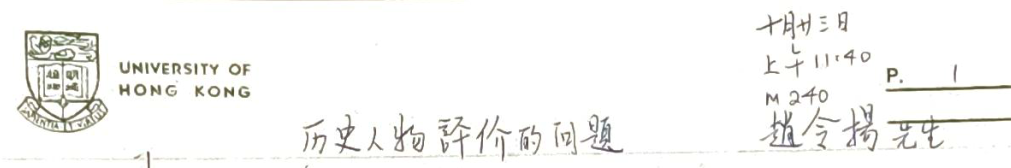 UNIVERSITY OF
HONG KONG
十月廿三日
上午 11:40
P. 1
M 240
历史人物評价的问題
趙令揚 先生